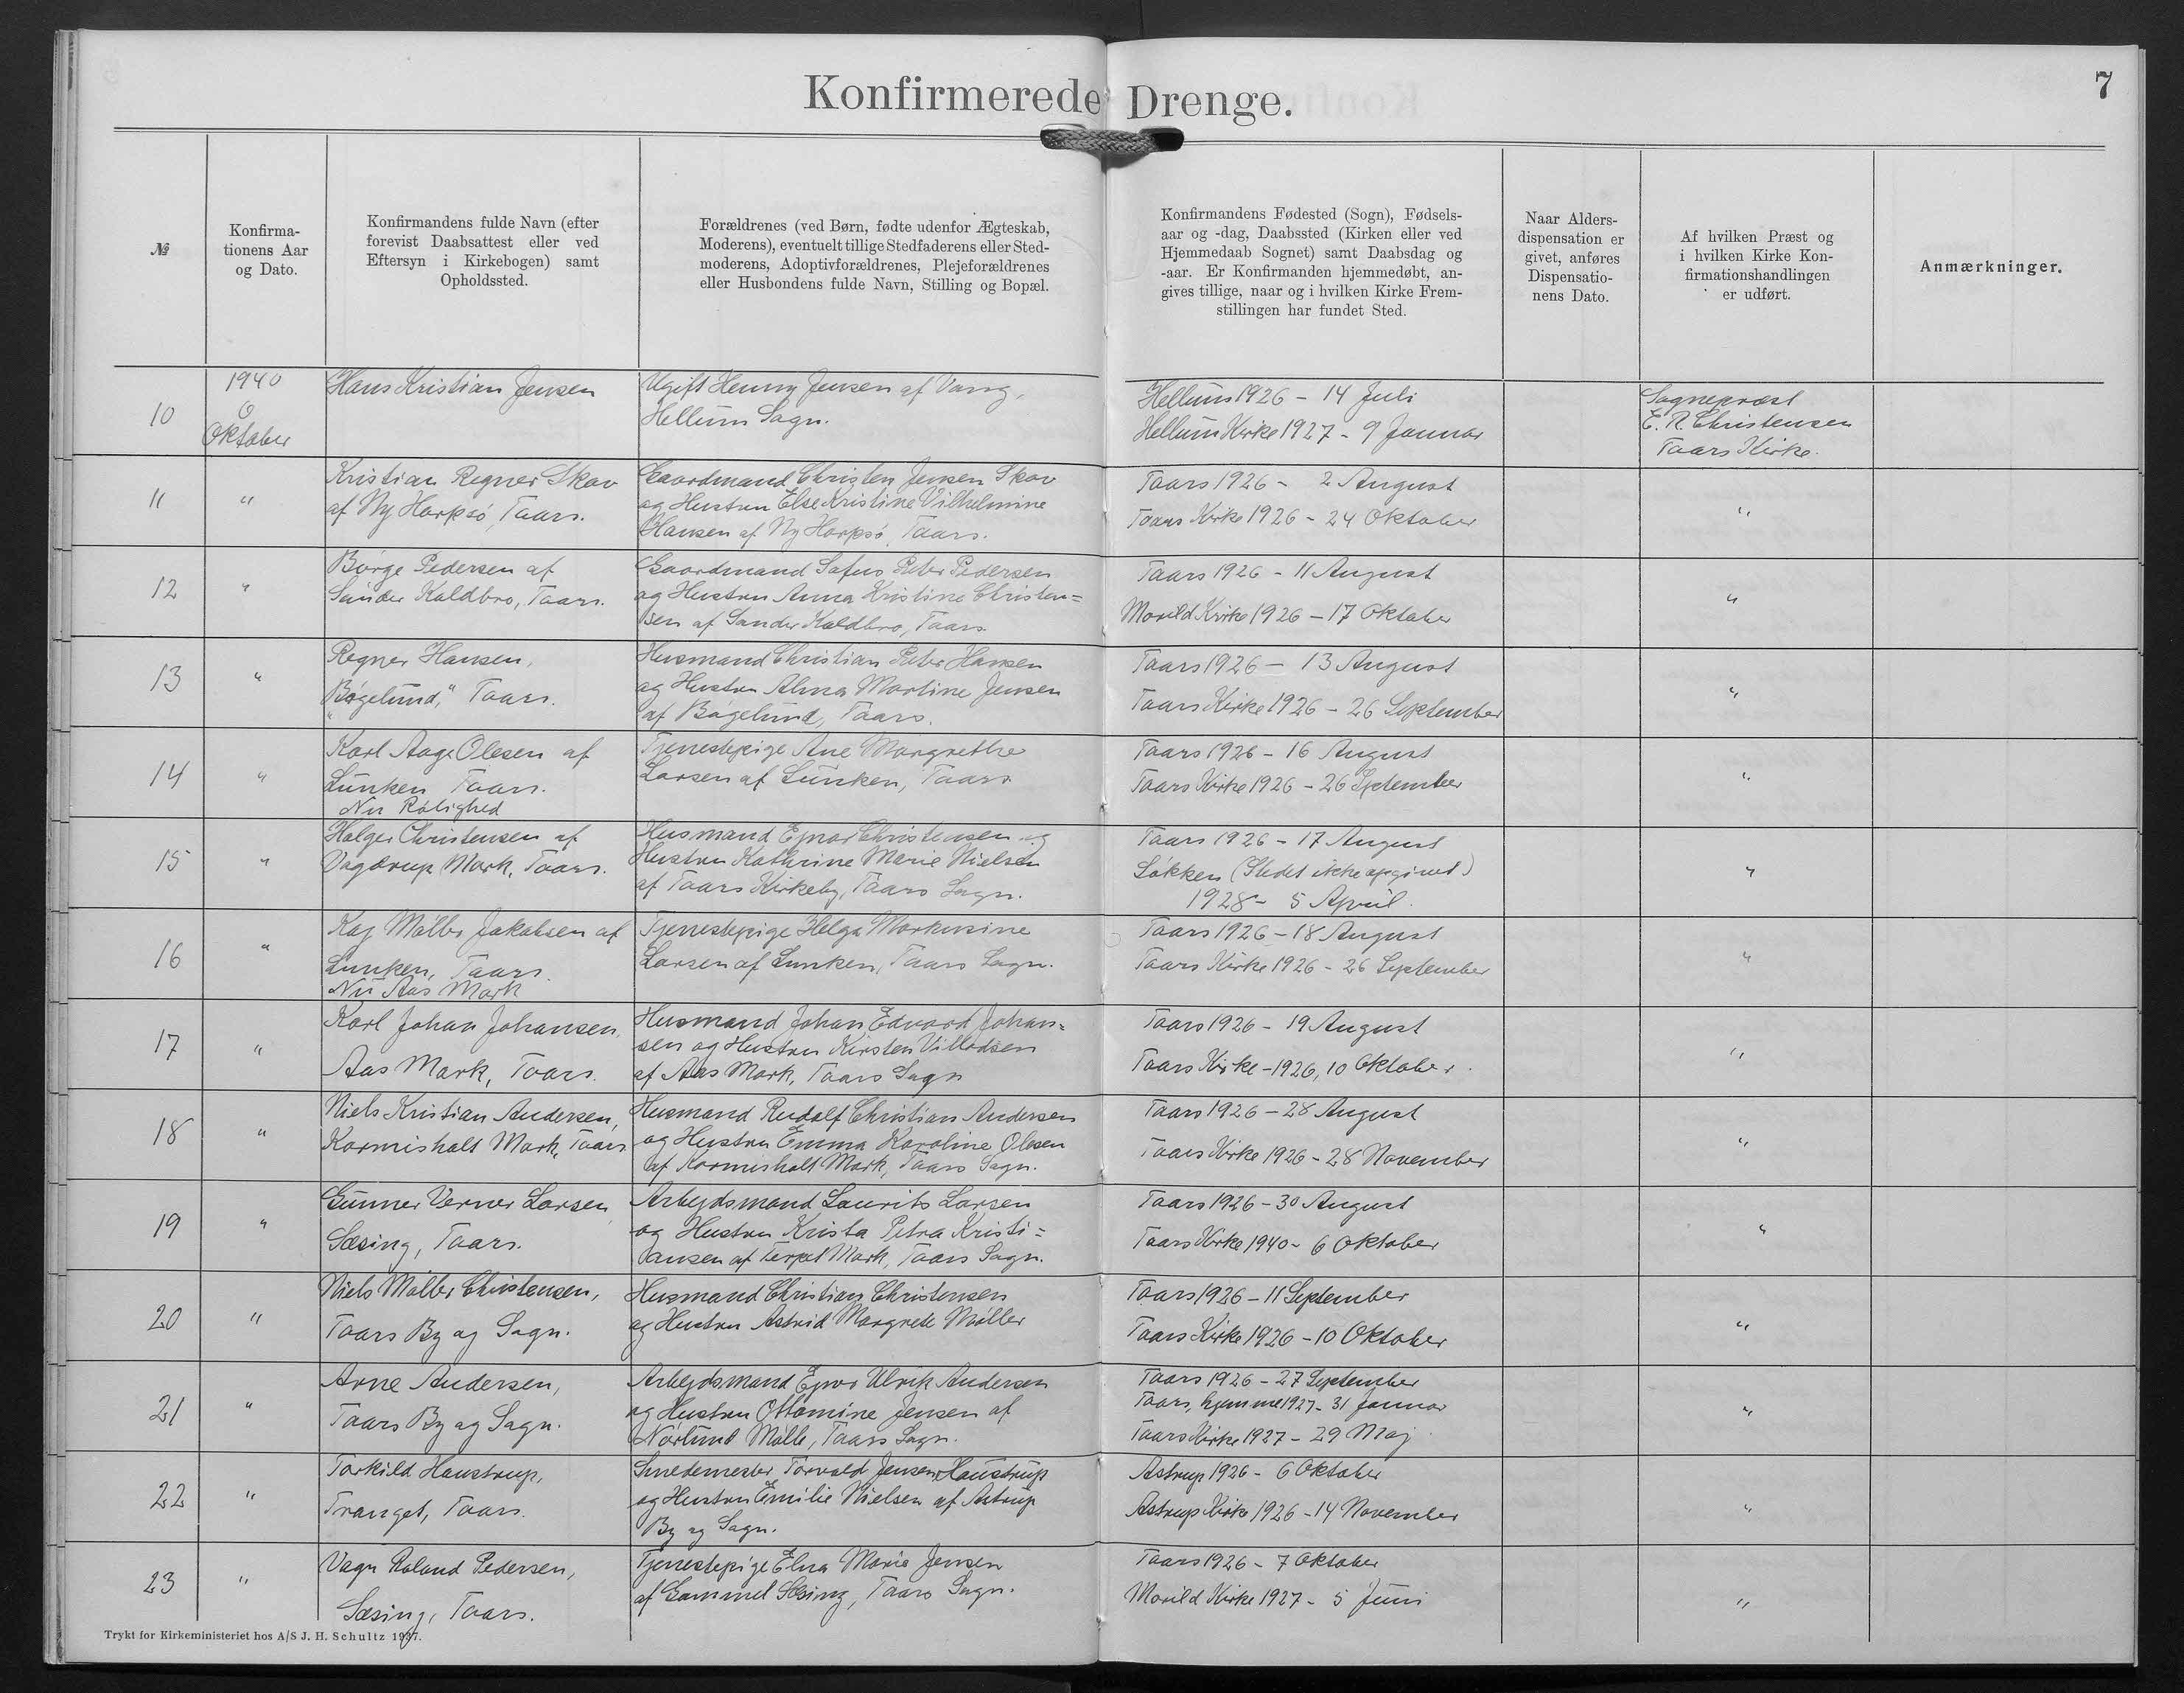 Konfirmerede Drenge.
7
№
Konfirma-
tionens Aar
og Dato.
Konfirmandens fulde Navn (efter
forevist Daabsattest eller ved
Eftersyn i Kirkebogen) samt
Opholdssted.
Forældrenes (ved Børn, fødte udenfor Ægteskab,
Moderens), eventuelt tillige Stedfaderens eller Sted-
moderens, Adoptivforældrenes, Plejeforældrenes
eller Husbondens fulde Navn, Stilling og Bopæl.
Konfirmandens Fødested (Sogn), Fødsels-
aar og -dag, Daabssted (Kirken eller ved
Hjemmedaab Sognet) samt Daabsdag og
-aar. Er Konfirmanden hjemmedøbt, an-
gives tillige, naar og i hvilken Kirke Frem-
stillingen har fundet Sted.
Naar Alders-
dispensation er
givet, anføres
Dispensatio-
nens Dato.
Af hvilken Præst og
i hvilken Kirke Kon-
firmationshandlingen
er udført.
Anmærkninger.
10
1940
6
Oktober
Hans Kristian Jensen
Ugift Henny Jensen af Vang,
Hellum Sogn.
Hellum 1926 - 14 Juli
Hellum Kirke 1927 - 9 Januar
Sognepræst
E. R. Christensen
Taars Kirke.
11
"
Kristian Regner Skov
af Ny Harpsø, Taars.
Gaardmand Christen Jensen Skov
og Hustru Else Kristine Vilhelmine
Hansen af Ny Harpsø, Taars.
Taars 1926 - 2 August
Taars Kirke 1926 - 24 Oktober
"
12
"
Børge Pedersen af
Sønder Kaldbro, Taars.
Gaardmand Sofus Peter Pedersen
og Hustru Anna Kristine Christen=
sen af Sønder Kaldbro, Taars
Taars 1926 - 11 August
Morild Kirke 1926 - 17 Oktober
"
13
"
Regner Hansen,
"Bøgelund," Taars.
Husmand Christian Peter Hansen
og Hustru Alma Martine Jensen
af Bøgelund, Taars.
Taars 1926 - 13 August
Taars Kirke 1926 - 26 September
"
14
"
Karl Aage Olesen af
Lunken Taars.
Nu Rolighed
Tjenestepige Ane Margrethe
Larsen af Lunken, Taars
Taars 1926 - 16 August
Taars Kirke 1926 - 26 September
"
15
"
Holger Christensen af
Vagtrup Mark, Taars.
Husmand Ejnar Christensen og
Hustru Kathrine Marie Nielsen
af Taars Kirkeby, Taars Sogn.
Taars 1926 - 17 August
Løkken (Stedet ikke opgivet)
1928 - 5 April.
"
16
"
Kaj Møller Jakobsen af
Lunken, Taars.
Nu Aas Mark
Tjenestepige Helga Markusine
Larsen af Lunken, Taars Sogn.
Taars 1926 - 18 August
Taars Kirke 1926 - 26 September
"
17
"
Karl Johan Johansen,
Aas Mark, Taars.
Husmand Johan Edvard Johan=
sen og Hustru Kirsten Villadsen
af Aas Mark, Taars Sogn
Taars 1926 - 19 August
Taars Kirke - 1926, 10 Oktober.
"
18
"
Niels Kristian Andersen,
Kormisholt Mark, Taars
Husmand Rudolf Christian Andersen
og Hustru Emma Karoline Olesen
af Kormisholt Mark, Taars Sogn.
Taars 1926 - 28 August
Taars Kirke 1926 - 28 November
"
19
"
Gunner Verner Larsen,
Sæsing, Taars.
Arbejdsmand Laurits Larsen
og Hustru Krista Petra Kristi=
ansen af Terpet Mark, Taars Sogn.
Taars 1926 - 30 August
Taars Kirke 1940 - 6 Oktober
"
20
"
Niels Møller Christensen,
Taars By og Sogn.
Husmand Christian Christensen
og Hustru Astrid Margrete Møller
Taars 1926 - 11 September
Taars Kirke 1926 - 10 Oktober
"
21
"
Arne Andersen,
Taars By og Sogn.
Arbejdsmand Ejner Ulrik Andersen
og Hustru Ottomine Jensen af
Nørlund Mølle, Taars Sogn.
Taars 1926 - 27 September
Taars, hjemme 1927 - 31 Januar
Taars Kirke 1927 - 29 Maj
"
22
"
Torkild Haustrup,
Tranget, Taars.
Smedemester Torvald Jensen Haustrup
og Hustru Emilie Nielsen af Astrup
By og Sogn.
Astrup 1926 - 6 Oktober
Astrup Kirke 1926 - 14 November
"
23
"
Vagn Roland Pedersen,
Sæsing, Taars.
Tjenestepige Elna Marie Jensen
af Gammel Sæsing, Taars Sogn.
Taars 1926 - 7 Oktober
Morild Kirke 1927 - 5 Juni
"
Trykt for Kirkeministeriet hos A/S J. H. Schultz 1937.